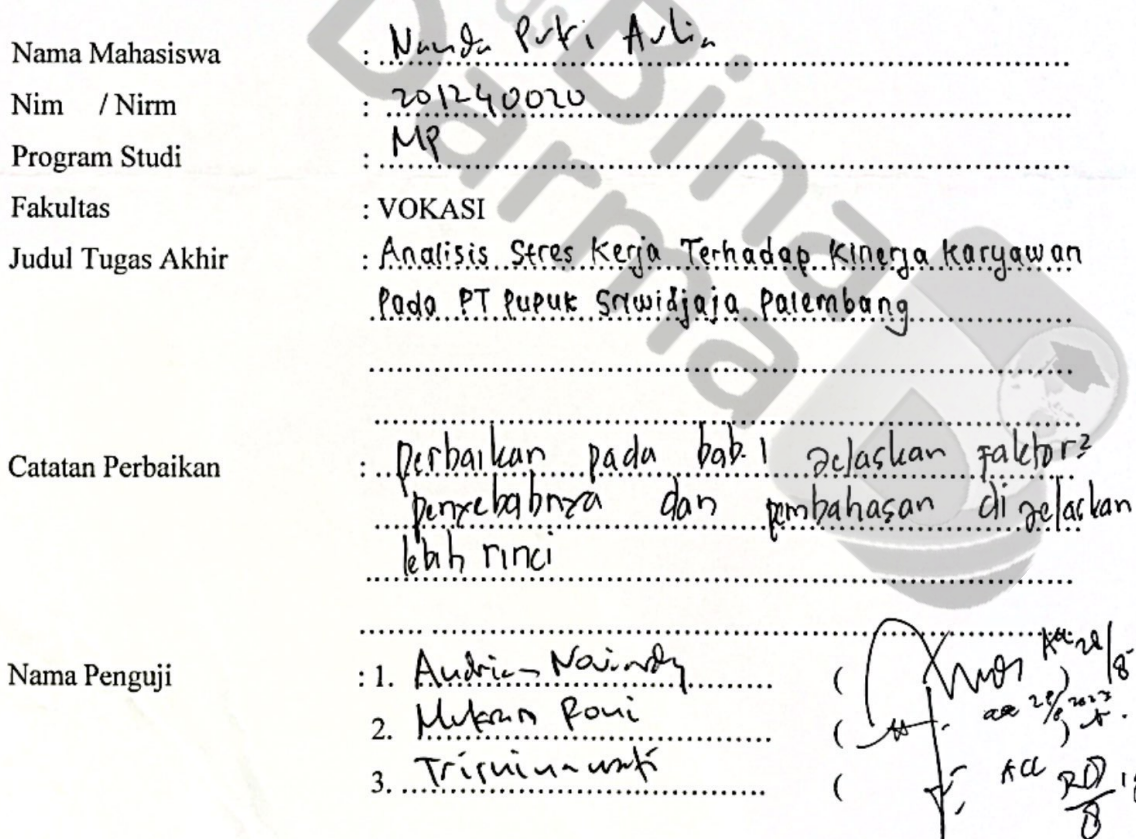 Bina
Darma
Nama Mahasiswa : Nanda Putri Aulia
Nim / Nirm : 201240020
Program Studi : MP
Fakultas : VOKASI
Judul Tugas Akhir : Analisis Stres Kerja Terhadap Kinerja Karyawan
Pada PT Pupuk Sriwidjaja Palembang
Catatan Perbaikan : Perbaikan pada bab. 1 jelaskan faktor2
penyebabnya dan pembahasan di jelaskan
lebih rinci
Nama Penguji : 1. Andrian Noviardy ( Acc )
2. Muhran Roni ( acc 2023 )
3. Trisninawati ( Acc